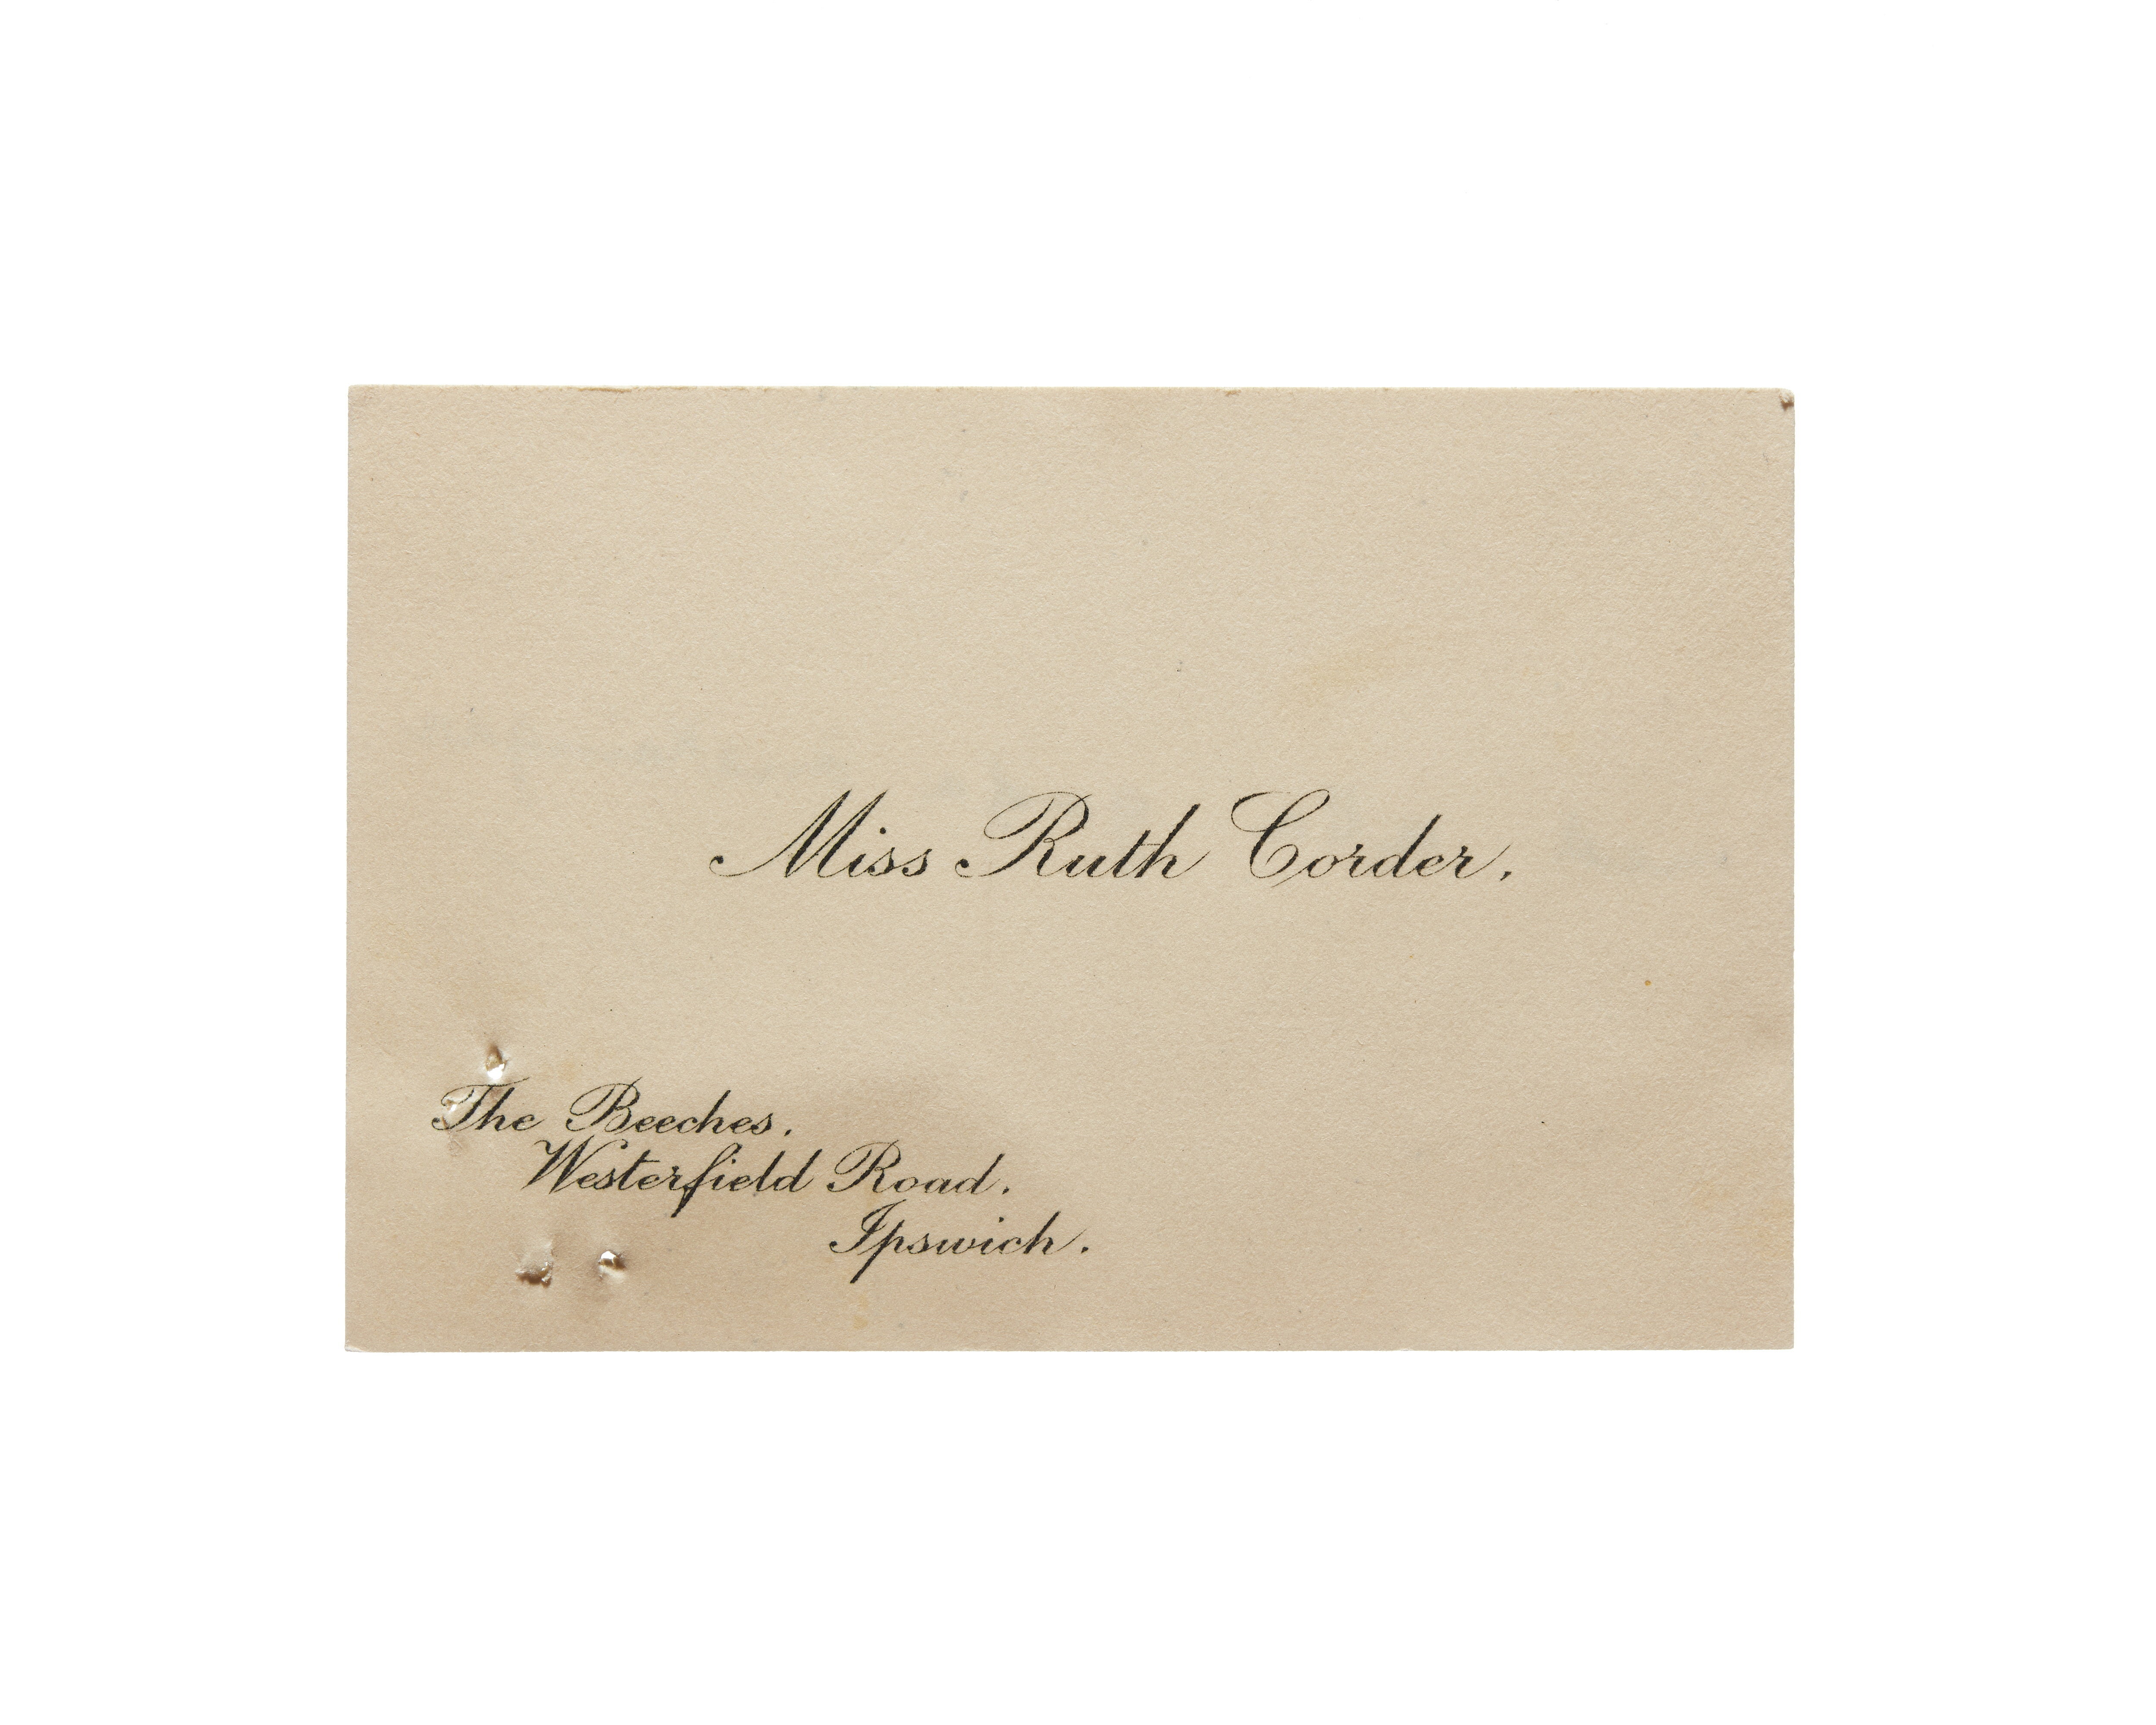 Miss Ruth Corder.
The Beeches.
Westerfield Road.
Ipswich.